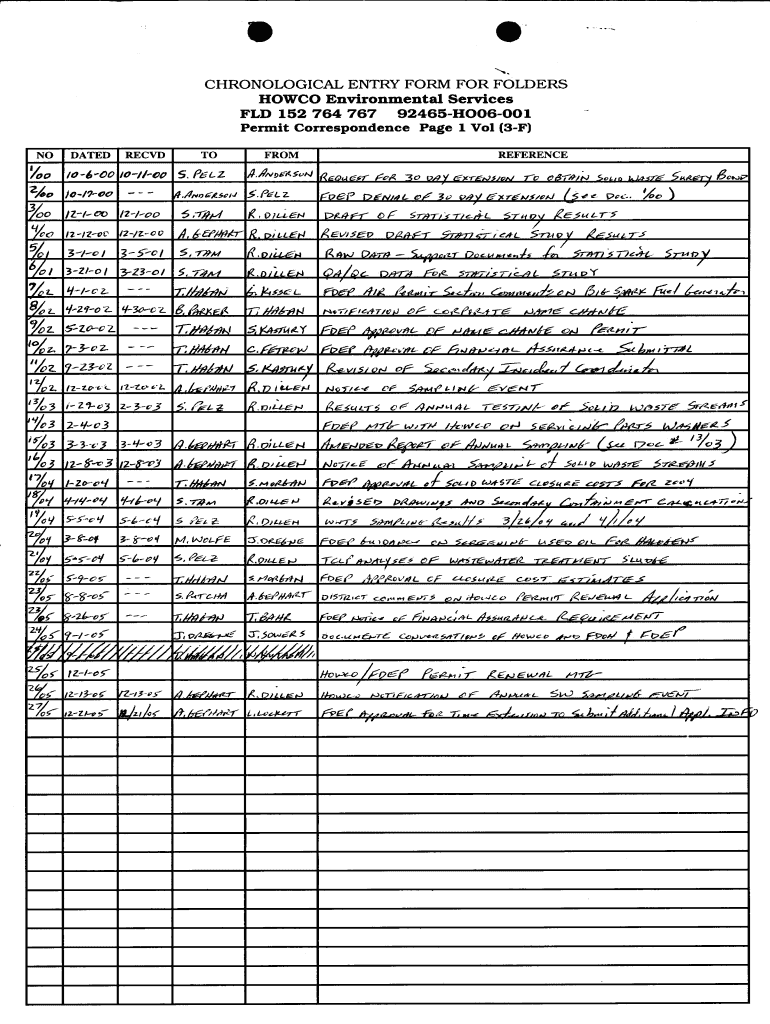 CHRONOLOGICAL ENTRY FORM FOR FOLDERS
HOWCO Environmental Services
FLD 152 764 767 92465-HO06-001
Permit Correspondence Page 1 Vol (3-F)
NO DATED RECVD TO FROM REFERENCE
1/00 10-6-00 10-11-00 S. PELZ A. ANDERSON REQUEST FOR 30 DAY EXTENSION TO OBTAIN SOLID WASTE SURETY BOND
2/00 10-17-00 --- A. ANDERSON S. PELZ FDEP DENIAL OF 30 DAY EXTENSION (see Doc. 1/00)
3/00 12-1-00 12-1-00 S. TAM R. DILLEN DRAFT OF STATISTICAL STUDY RESULTS
4/00 12-12-00 12-12-00 A. GEPHART R. DILLEN REVISED DRAFT STATISTICAL STUDY RESULTS
5/01 3-1-01 3-5-01 S. TAM R. DILLEN RAW DATA - Support Documents for STATISTICAL STUDY
6/01 3-21-01 3-23-01 S. TAM R. DILLEN QA/QC DATA FOR STATISTICAL STUDY
7/02 4-1-02 --- T. HAGAN G. KISSEL FDEP AIR Permit Section Comments on BIG SPARK Fuel Generator
8/02 4-29-02 4-30-02 B. PARKER T. HAGAN NOTIFICATION OF CORPORATE NAME CHANGE
9/02 5-20-02 --- T. HAGAN S. KASTURY FDEP APPROVAL OF NAME CHANGE ON PERMIT
10/02 7-3-02 --- T. HAGAN C. FETROW FDEP APPROVAL OF FINANCIAL ASSURANCE SUBMITTAL
11/02 9-23-02 --- T. HAGAN S. KASTURY REVISION OF Secondary Incident Coordinator
12/02 12-20-02 12-20-02 A. GEPHART R. DILLEN NOTICE OF SAMPLING EVENT
13/03 1-29-03 2-3-03 S. PELZ R. DILLEN RESULTS OF ANNUAL TESTING OF SOLID WASTE STREAMS
14/03 2-4-03 FDEP MTG WITH HOWCO ON SERVICING PARTS WASHERS
15/03 3-3-03 3-4-03 A. GEPHART R. DILLEN AMENDED REPORT OF ANNUAL SAMPLING (see Doc # 13/03)
16/03 12-8-03 12-8-03 A. GEPHART R. DILLEN NOTICE OF ANNUAL SAMPLING of SOLID WASTE STREAMS
17/04 1-20-04 --- T. HAGAN S. MORGAN FDEP APPROVAL of SOLID WASTE CLOSURE COSTS FOR 2004
18/04 4-14-04 4-16-04 S. TAM R. DILLEN Revised DRAWINGS AND Secondary Containment CALCULATIONS
19/04 5-5-04 5-6-04 S PELZ R. DILLEN WWTS SAMPLING Results 3/26/04 and 4/1/04
20/04 3-8-04 3-8-04 M. WOLFE J. DREGNE FDEP GUIDANCE ON SCREENING USED OIL FOR HALOGENS
21/04 5-05-04 5-6-04 S. PELZ R. DILLEN TCLP ANALYSES OF WASTEWATER TREATMENT SLUDGE
22/05 5-9-05 --- T. HAGAN S. MORGAN FDEP APPROVAL OF CLOSURE COST ESTIMATES
23/05 8-8-05 --- S. PUTCHA A. GEPHART DISTRICT COMMENTS ON HOWCO PERMIT RENEWAL Application
23/05 8-26-05 --- T. HAGAN T. BAHR FDEP Notice of Financial Assurance REQUIREMENT
24/05 9-1-05 J. DREGNE J. SOWERS DOCUMENTS CONVERSATIONS OF HOWCO AND FDOH & FDEP
25/05 12-1-05 HOWCO/FDEP PERMIT RENEWAL MTG
26/05 12-13-05 12-13-05 A. GEPHART R. DILLEN HOWCO NOTIFICATION OF ANNUAL SW SAMPLING EVENT
27/05 12-21-05 12/21/05 A. GEPHART L. LOCKETT FDEP Approval For Time Extension TO Submit Additional Appl. INFO